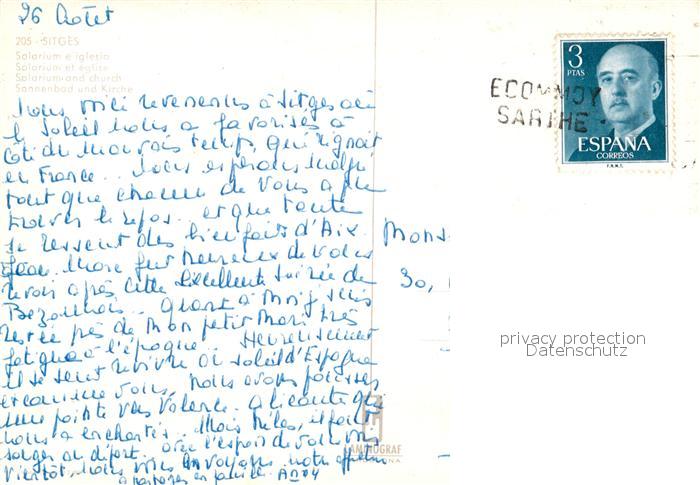 26 Aôtet
205 - SITGES
Solarium e iglesia
Solarium et église
Solarium and church
Sonnenbad und Kirche
3
PTAS
ECOMMOY
SARTHE
ESPAÑA
CORREOS
F.N.M.T.
Nous voici revenus à Sitges où
le soleil nous a favorisés à
côté du mauvais temps qui régnait
en France.. Nous espérons malgré
tout que chacun de vous a pu
trouver le repos.. et que toute
se ressent des bienfaits d'Aix.
Jean Marc fut heureux de vous
revoir après cette excellente soirée de
Bezonnais. Quant à moi je suis
restée près de mon petit mari très
fatigué à l'époque. Heureusement
il se sent revivre au soleil d'Espagne
et comme vous nous avons poussé
une pointe vers Valence. Alicante qui
nous a enchantés. Mais hélas, il faut
songer au départ. avec l'espoir de vous voir
bientôt, nous vous envoyons notre affection
à partager en famille.
Mons
30,
privacy protection
Datenschutz